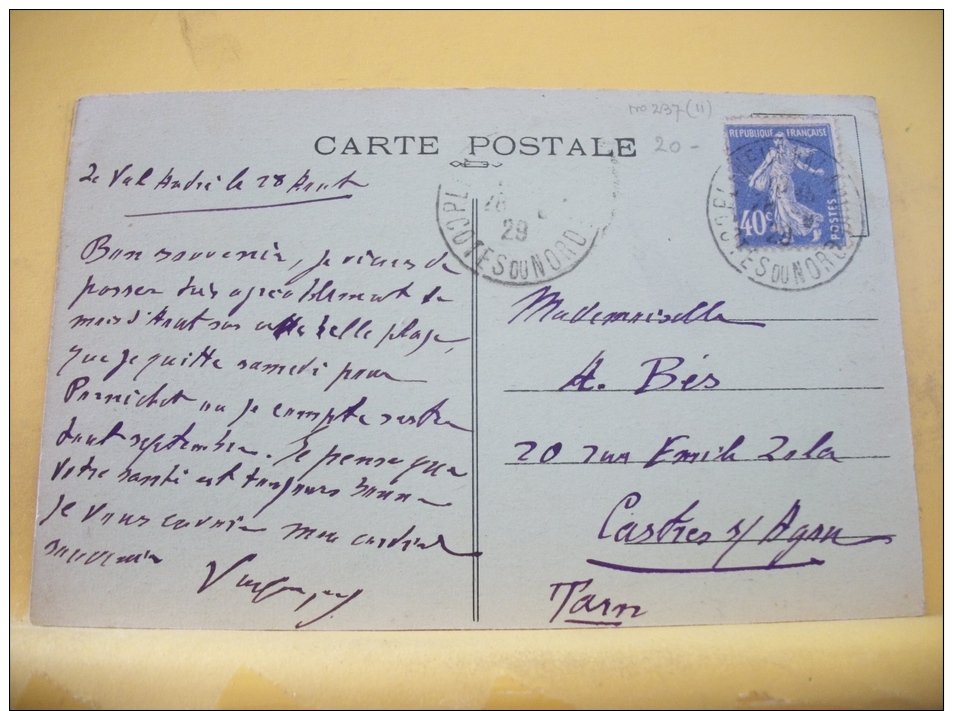 no 237 (11)
20-
CARTE POSTALE
REPUBLIQUE FRANÇAISE
40c
POSTES
28
29
COTES DU NORD
29
COTES DU NORD
Le Val André le 28 Aout
Bon souvenir, je viens de
passer très agréablement le
mois d'Aout sur cette belle plage,
que je quitte samedi pour
Pornichet ou je compte rester
tout septembre. Je pense que
votre santé est toujours bonne
Je vous envoie mon cordial
souvenir
Mademoiselle
A. Bés
20 rue Emile Zola
Castres s/ Agou
Tarn